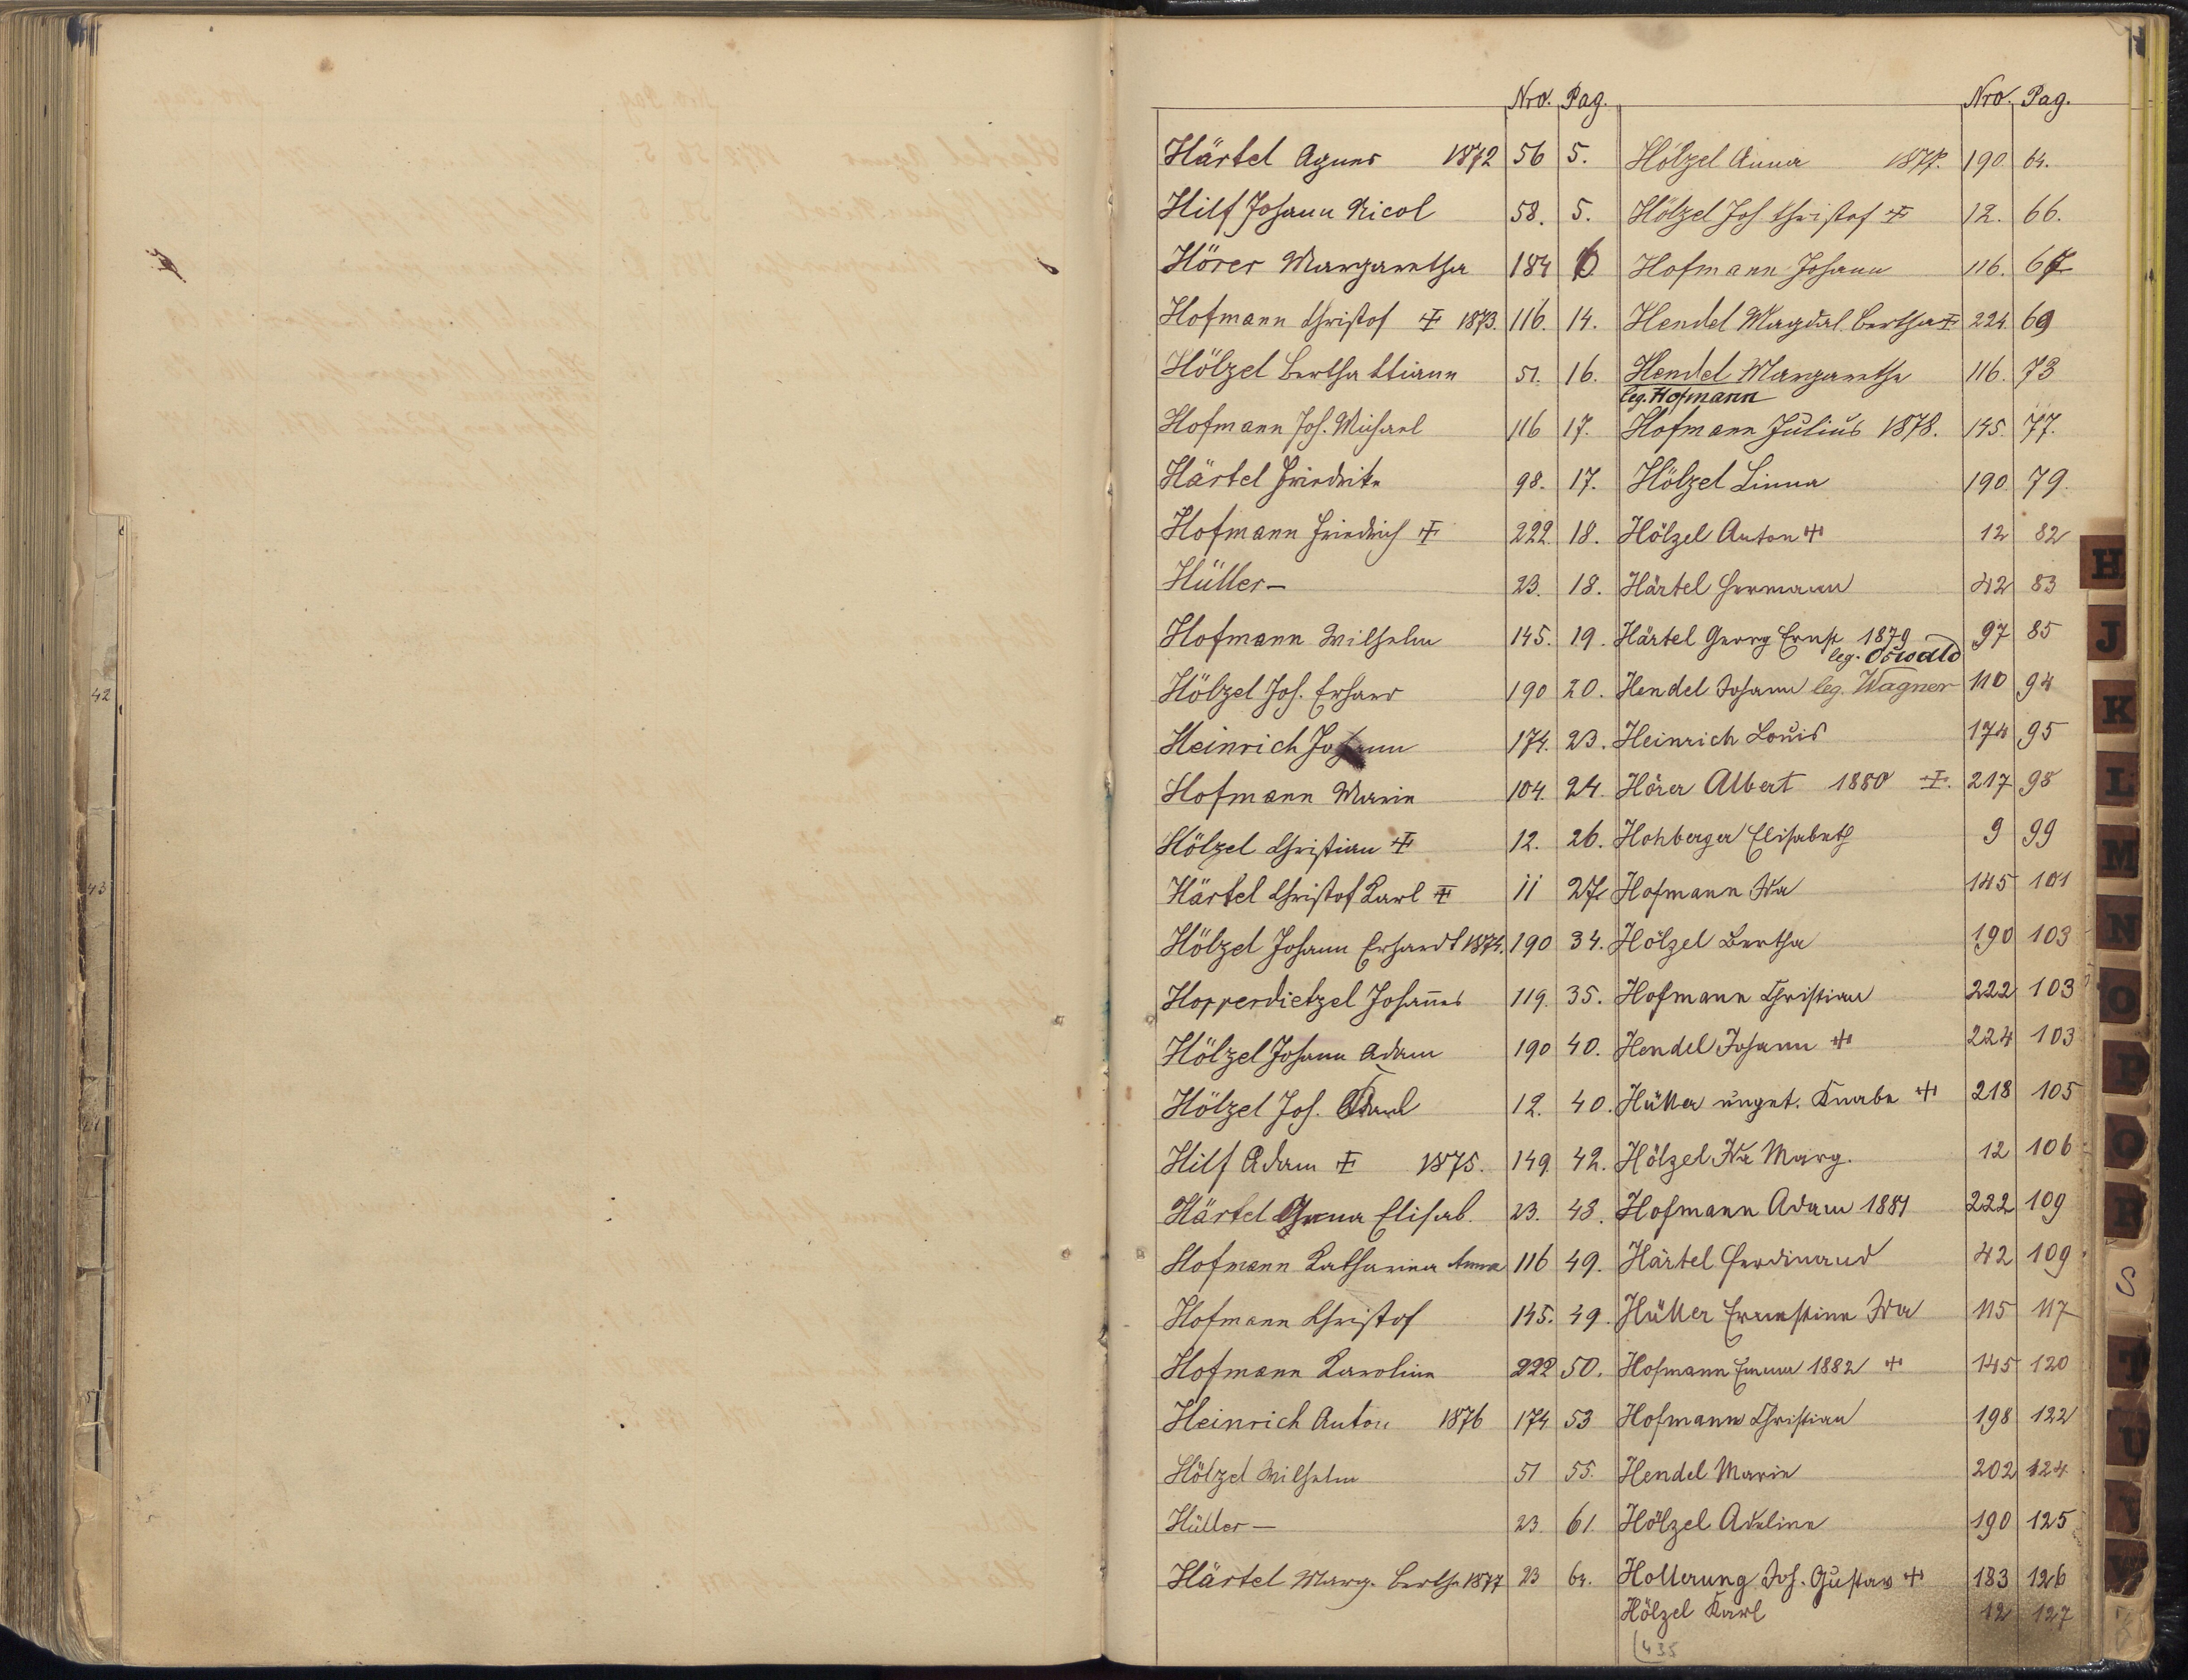 Nro. Pag.
Härtel Agnes 1872 56 5.
Hilf Johann Nicol 58. 5.
Hörer Margaretha 184 6
Hofmann Christof 1873. 116. 14.
Hölzel Bertha 51. 16.
Hofmann Joh. Michael 116 17.
Härtel Friedrike 98. 17.
Hofmann Friedrich 222. 18.
Hüller — 23. 18.
Hofmann Wilhelm 145. 19.
Hölzel Joh. Erhard 190 20.
Heinrich Johann 174. 23.
Hofmann Marie 104. 24.
Hölzel Christian 12. 26.
Härtel Christof Karl 11 27
Hölzel Johann Erhardt 1874. 190 34.
Hopperdietzel Johannes 119. 35.
Hölzel Johann Adam 190 40.
Hölzel Joh. Karl 12. 40.
Hilf Adam 1875. 149 42.
Härtel Anna Elisab. 23. 43.
Hofmann Katharina Anna 116 49.
Hofmann Christof 145. 49.
Hofmann Karoline 222 50.
Heinrich Anton 1876 174 53
Hölzel Wilhelm 51 55.
Hüller — 23. 61.
Härtel Marg. Bertha 1877 23 64.
Nro. Pag.
Hölzel Anna 1877. 190. 64.
Hölzel Joh Christof 12. 66.
Hofmann Johann 116. 67
Hendel Magdal. Bertha 224. 69
Hendel Margaretha 116. 73
leg. Hofmann
Hofmann Julius 1878. 145. 77.
Hölzel Linna 190 79.
Hölzel Anton 12 82
Härtel Hermann 42 83
Härtel Georg Ernst 1879 97 85
leg. Oswald
Hendel Johann leg. Wagner 110 94
Heinrich Louis 174 95
Hörer Albert 1880 217 98
Hohberger Elisabeth 9 99
Hofmann Ida 145 101
Hölzel Bertha 190 103
Hofmann Christian 222 103
Hendel Johann 224 103
Hüller unget. Knabe 218 105
Hölzel Ida Marg. 12 106
Hofmann Adam 1881 222 109
Härtel Ferdinand 42 109
Hüller Ernestine Ida 115 117
Hofmann Emma 1882 145 120
Hofmann Christian 198 122
Hendel Marie 202 124
Hölzel Adeline 190 125
Hollerung Joh. Gustav 183 126
Hölzel Karl 12 127
435
H
J
K
L
M
N
O
P
Q
R
S
T
U
V
W
42
43